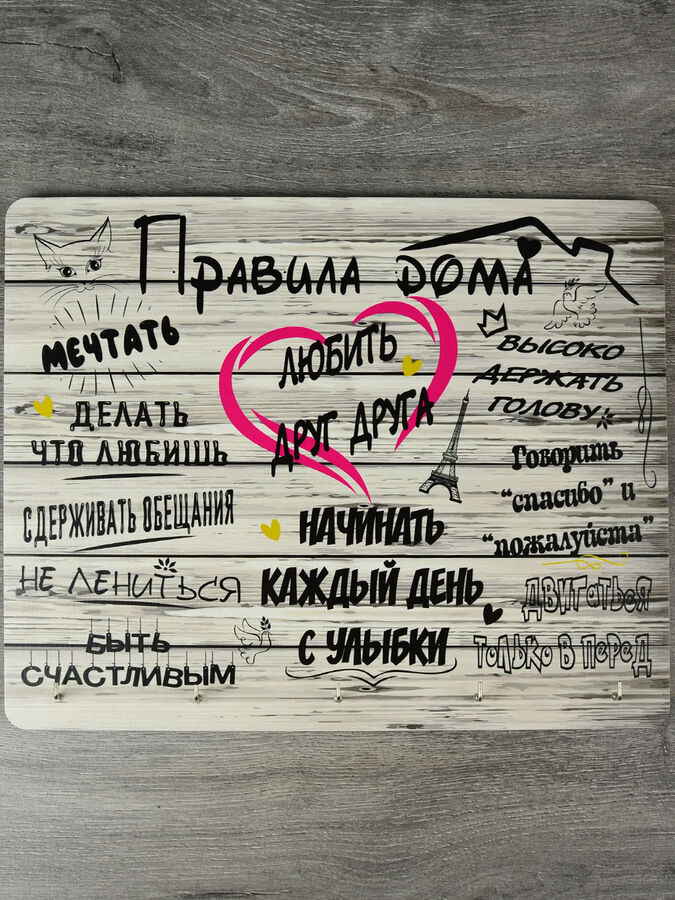 Правила дома
МЕЧТАТЬ
ДЕЛАТЬ
ЧТО ЛЮБИШЬ
СДЕРЖИВАТЬ ОБЕЩАНИЯ
НЕ ЛЕНИТЬСЯ
БЫТЬ
СЧАСТЛИВЫМ
ЛЮБИТЬ
ДРУГ ДРУГА
НАЧИНАТЬ
КАЖДЫЙ ДЕНЬ
С УЛЫБКИ
ВЫСОКО
ДЕРЖАТЬ
ГОЛОВУ
Говорить
“спасибо” и
“пожалуйста”
ДВИГАТЬСЯ
ТОЛЬКО В ПЕРЕД